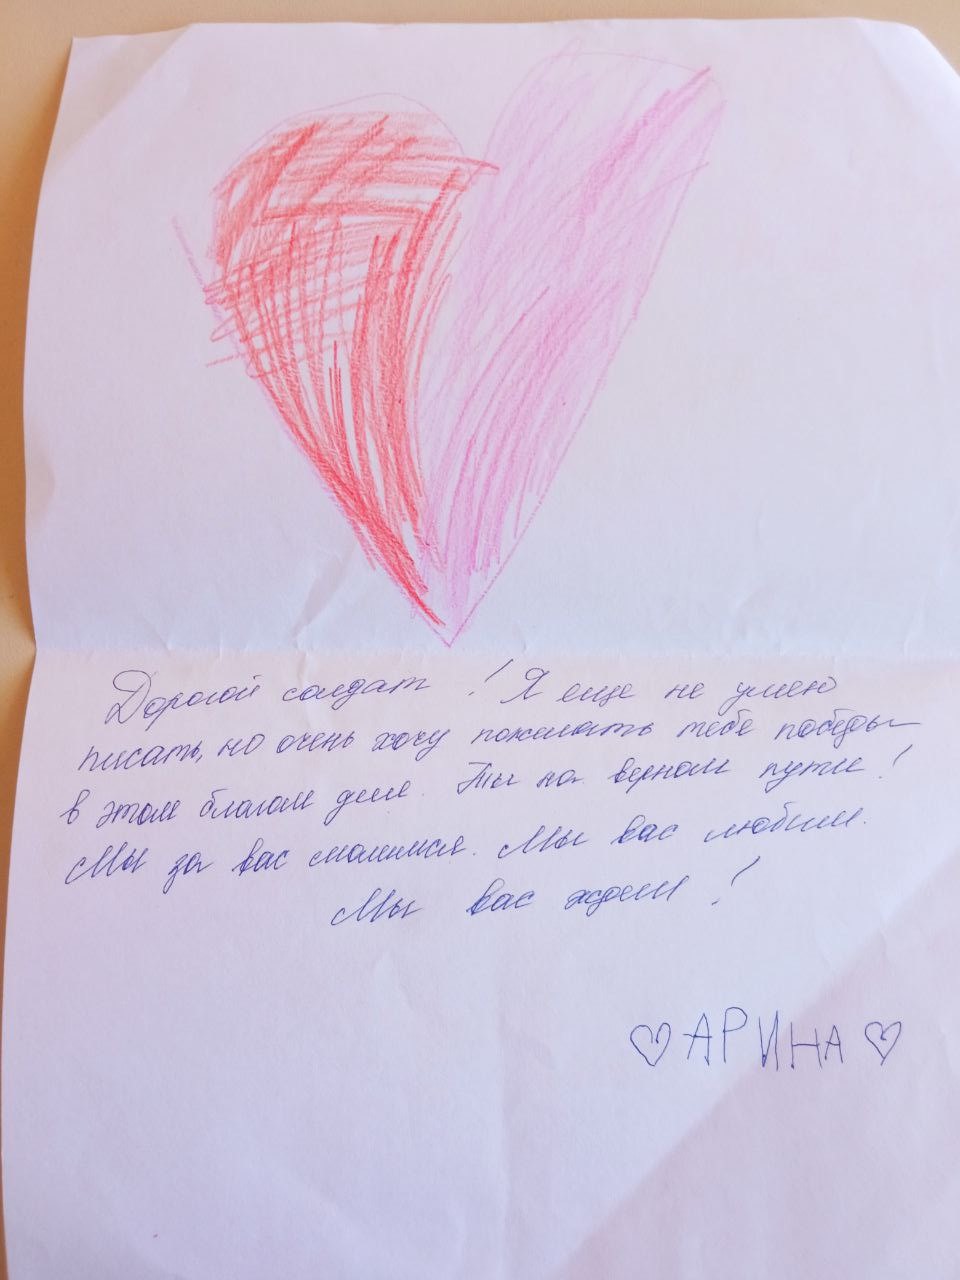 Дорогой солдат! Я еще не умею
писать, но очень хочу пожелать тебе победы
в этом благом деле. Ты на верном пути!
Мы за вас молимся. Мы вас любим.
Мы вас ждем!
♡ АРИНА ♡